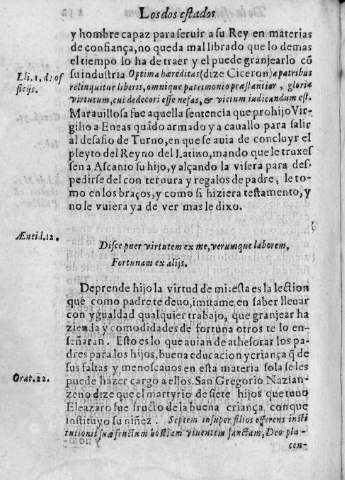 Los dos estados
y hombre capaz para seruir a su Rey en materias
de confiança, no queda mal librado que lo demas
el tiempo lo ha de traer y el puede granjearlo cō
su industria Optima hæreditas (dize Ciceron) a patribus
Lli. 1. d: of
ficijs.
relinquitur liberis, omnique patrimonio præstantior, gloria
virtutum, cui dedecori esse nefas, & vitium iudicandum est.
Marauillosa fue aquella sentencia que prohijo Vir-
gilio a Eneas quādo armado y a cauallo para salir
al desafio de Turno, en que se auia de concluyr el
pleyto del Reyno del Latino, mando que le truxes
sen a Ascanto su hijo, y alçando la visera para des-
pedirse del con ternura y regalos de padre, le to-
mo en los braços, y como si hiziera testamento, y
no le vuiera ya de ver mas le dixo.
Æneid. 12.
Disce puer virtutem ex me, verumque laborem,
Fortunam ex alijs.
Deprende hijo la virtud de mi: esta es la lection
que como padre te deuo, imitame, en saber lleuar
con ygualdad qualquier trabajo, que granjear ha
zienda y comodidades de fortuna otros te lo en-
señaran. Esto es lo que auian de athesorar los pa
dres para los hijos, buena educacion y criança q̄ de
sus faltas y menoscauos en esta materia sola se les
Orat. 22.
puede hazer cargo a ellos. San Gregorio Nazian-
zeno dize que el martyrio de siete hijos que tuuo
Eleazaro fue fructo de la buena criança, con que
instituyo su niñez. Septem insuper filios offerens insti
tutionis suæ sanctum hostiam viuentem sanctam, Deo pla-
cen-